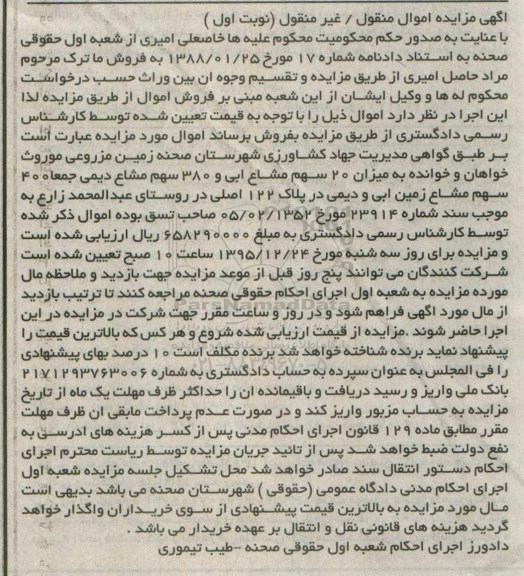 آگهی مزایده اموال منقول / غیر منقول (نوبت اول )
با عنایت به صدور حکم محکومیت محکوم علیه ها خاصعلی امیری از شعبه اول حقوقی
صحنه به استناد دادنامه شماره ۱۷ مورخ ۱۳۸۸/۰۱/۲۵ به فروش ما ترک مرحوم
مراد حاصل امیری از طریق مزایده و تقسیم وجوه ان بین وراث حسب درخواست
محکوم له ها و وکیل ایشان از این شعبه مبنی بر فروش اموال از طریق مزایده لذا
این اجرا در نظر دارد اموال ذیل را با توجه به قیمت تعیین شده توسط کارشناس
رسمی دادگستری از طریق مزایده بفروش برساند اموال مورد مزایده عبارت است
بر طبق گواهی مدیریت جهاد کشاورزی شهرستان صحنه زمین مزروعی موروث
خواهان و خوانده به میزان ۲۰ سهم مشاع ابی و ۳۸۰ سهم مشاع دیمی جمعا ۴۰۰
سهم مشاع زمین ابی و دیمی در پلاک ۱۲۲ اصلی در روستای عبدالمحمد زارع به
موجب سند شماره ۲۳۹۱۴ مورخ ۰۵/۰۲/۱۳۵۲ صاحب نسق بوده اموال ذکر شده
توسط کارشناس رسمی دادگستری به مبلغ ۶۵۸۲۹۰۰۰۰ ریال ارزیابی شده است
و مزایده برای روز سه شنبه مورخ ۱۳۹۵/۱۲/۲۴ ساعت ۱۰ صبح تعیین شده است
شرکت کنندگان می توانند پنج روز قبل از موعد مزایده جهت بازدید و ملاحظه مال
مورده مزایده به شعبه اول اجرای احکام حقوقی صحنه مراجعه کنند تا ترتیب بازدید
از مال مورد اگهی فراهم شود و در روز و ساعت مقرر جهت شرکت در مزایده در این
اجرا حاضر شوند .مزایده از قیمت ارزیابی شده شروع و هر کس که بالاترین قیمت را
پیشنهاد نماید برنده شناخته خواهد شد برنده مکلف است ۱۰ درصد بهای پیشنهادی
را فی المجلس به عنوان سپرده به حساب دادگستری به شماره ۲۱۷۱۲۹۳۷۶۳۰۰۶
بانک ملی واریز و رسید دریافت و باقیمانده ان را حداکثر ظرف مهلت یک ماه از تاریخ
مزایده به حساب مزبور واریز کند و در صورت عدم پرداخت مابقی ان ظرف مهلت
مقرر مطابق ماده ۱۲۹ قانون اجرای احکام مدنی پس از کسر هزینه های ادرسی به
نفع دولت ضبط خواهد شد پس از تائید جریان مزایده توسط ریاست محترم اجرای
احکام دستور انتقال سند صادر خواهد شد محل تشکیل جلسه مزایده شعبه اول
اجرای احکام مدنی دادگاه عمومی (حقوقی ) شهرستان صحنه می باشد بدیهی است
مال مورد مزایده به بالاترین قیمت پیشنهادی از سوی خریداران واگذار خواهد
گردید هزینه های قانونی نقل و انتقال بر عهده خریدار می باشد .
دادورز اجرای احکام شعبه اول حقوقی صحنه -طیب تیموری